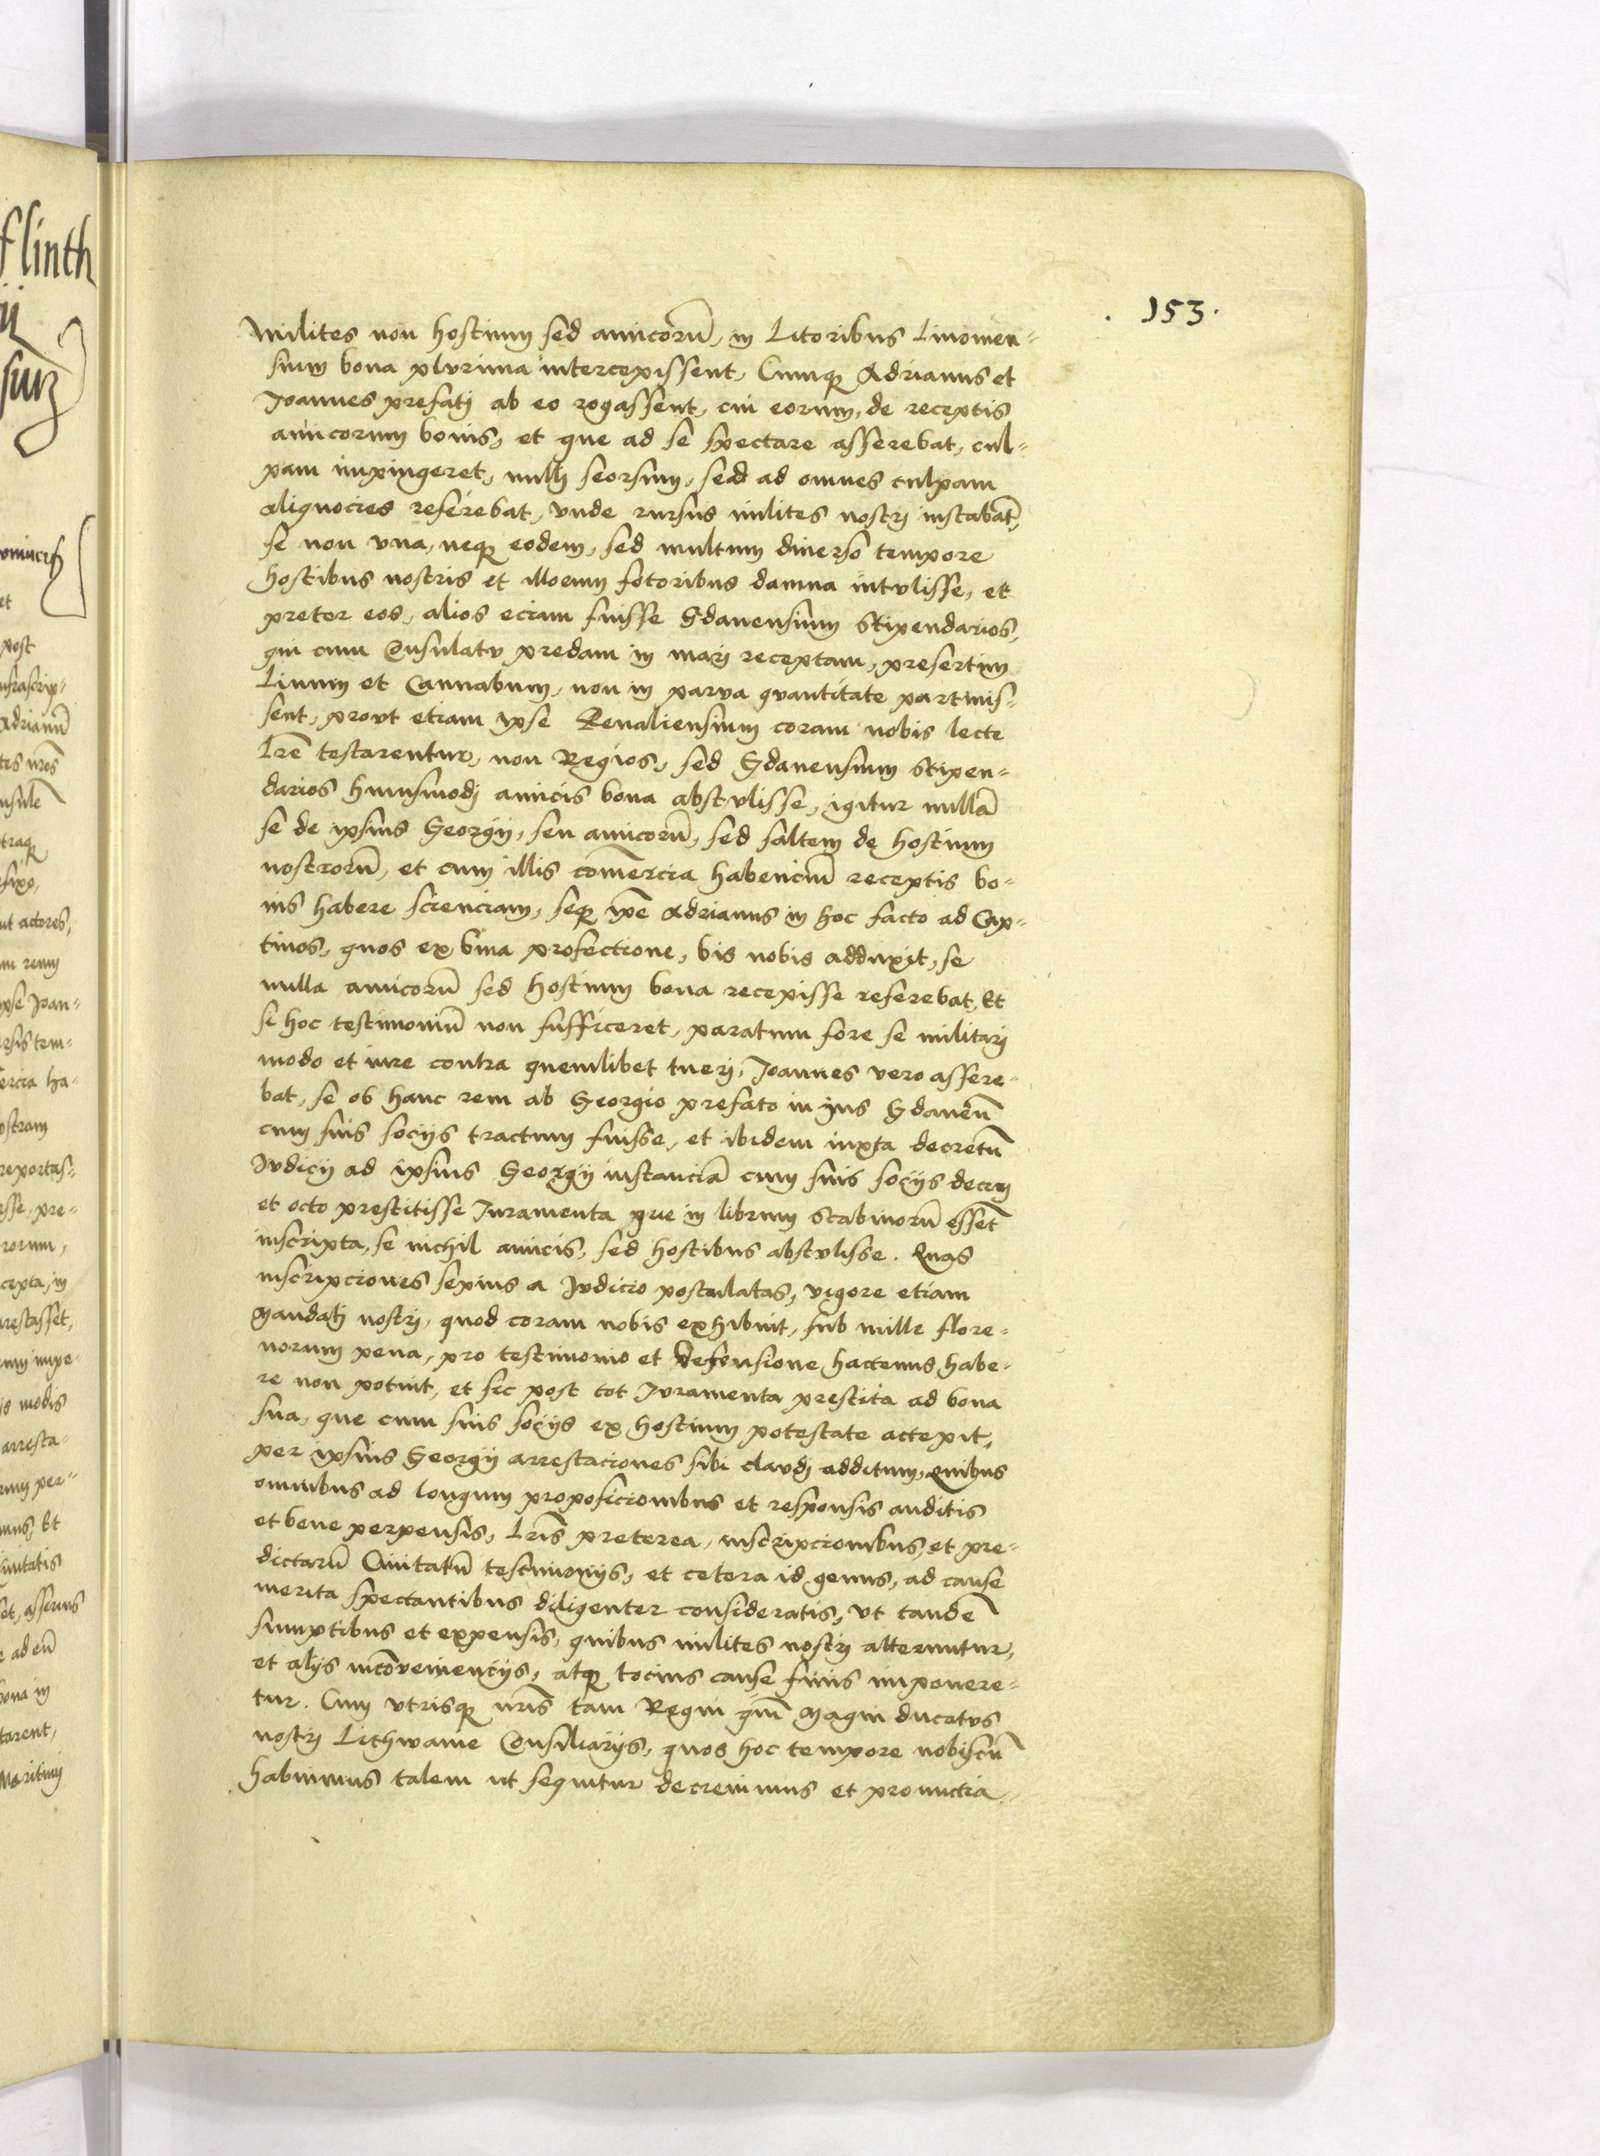 .153.
Milites non hostium sed amicorū, in Litoribus Liuonien-
sium bona plurima intercepissent, Cumq Adrianus et
Joannes prefatj ab eo rogassent, cui eorum, de receptis
amicorum bonis, et que ad se spectare asserebat, cul-
pam impingeret, nullj seorsum, sed ad omnes culpam
aliquocies referebat, vnde rursus milites nostrj instabāt,
se non vna, neq eodem, sed multum diuerso tempore
hostibus nostris et illorum fotoribus damna intulisse, et
preter eos, alios eciam fuisse Gdanensium stipendarios,
qui cum Consulatu predam in marj receptam, presertim
Linum et Cannabum, non in parua quantitate partiuis-
sent, prout etiam ipse Reualiensium coram nobis lecte
Lrē testarentur, non Regios, sed Gdanensium stipen-
darios huiusmodj amicis bona abstulisse, igitur nullā
se de ipsius Georgij, seu amicorū, sed saltem de hostium
nostrorū, et cum illis comercia habenciū receptis bo-
nis habere scienciam, seq ipē Adrianus in hoc facto ad Cap-
tiuos, quos ex bina profectione, bis nobis adduxit, se
nulla amicorū sed hostium bona recepisse referebat, Et
si hoc testimoniū non sufficeret, paratum fore se militarj
modo et iure contra quemlibet tuerj, Joannes vero assere-
bat, se ob hanc rem ab Georgio prefato in ius Gdanēn
cum suis socijs tractum fuisse, et ibidem iuxta decretū
Judicij ad ipsius Georgij instanciā cum suis socijs decem
et octo prestitisse Juramenta que in librum scabinorū essēt
inscripta, se nichil amicis, sed hostibus abstulisse. Quas
inscripciones sepius a Judicio postulatas, vigore etiam
Mandatj nostrj, quod coram nobis exhibuit, sub mille flore-
norum pena, pro testimonio et defensione hactenus habe-
re non potuit, et sic post tot Juramenta prestita ad bona
sua, que cum suis socijs ex hostium potestate accepit,
per ipsius Georgij arrestaciones sibi claudj additum, Quibus
omnibus ad longum proposicionibus et responsis auditis
et bene perpensis, Lris preterea, inscripcionibus, et pre-
dictarū Ciuitatū testimonijs, et cetera id genus, ad cause
merita spectantibus diligenter consideratis, Vt tandē
sumptibus et expensis, quibus milites nostrj atteruntur,
et alijs inconueniencijs, atq tocius cause finis imponere-
tur. Cum vtrisq nris tam Regni qm̄ Magni ducatus
nostrj Lithwanie Consiliarijs, quos hoc tempore nobiscū
habuimus talem ut sequitur decreuimus et pronuncia-